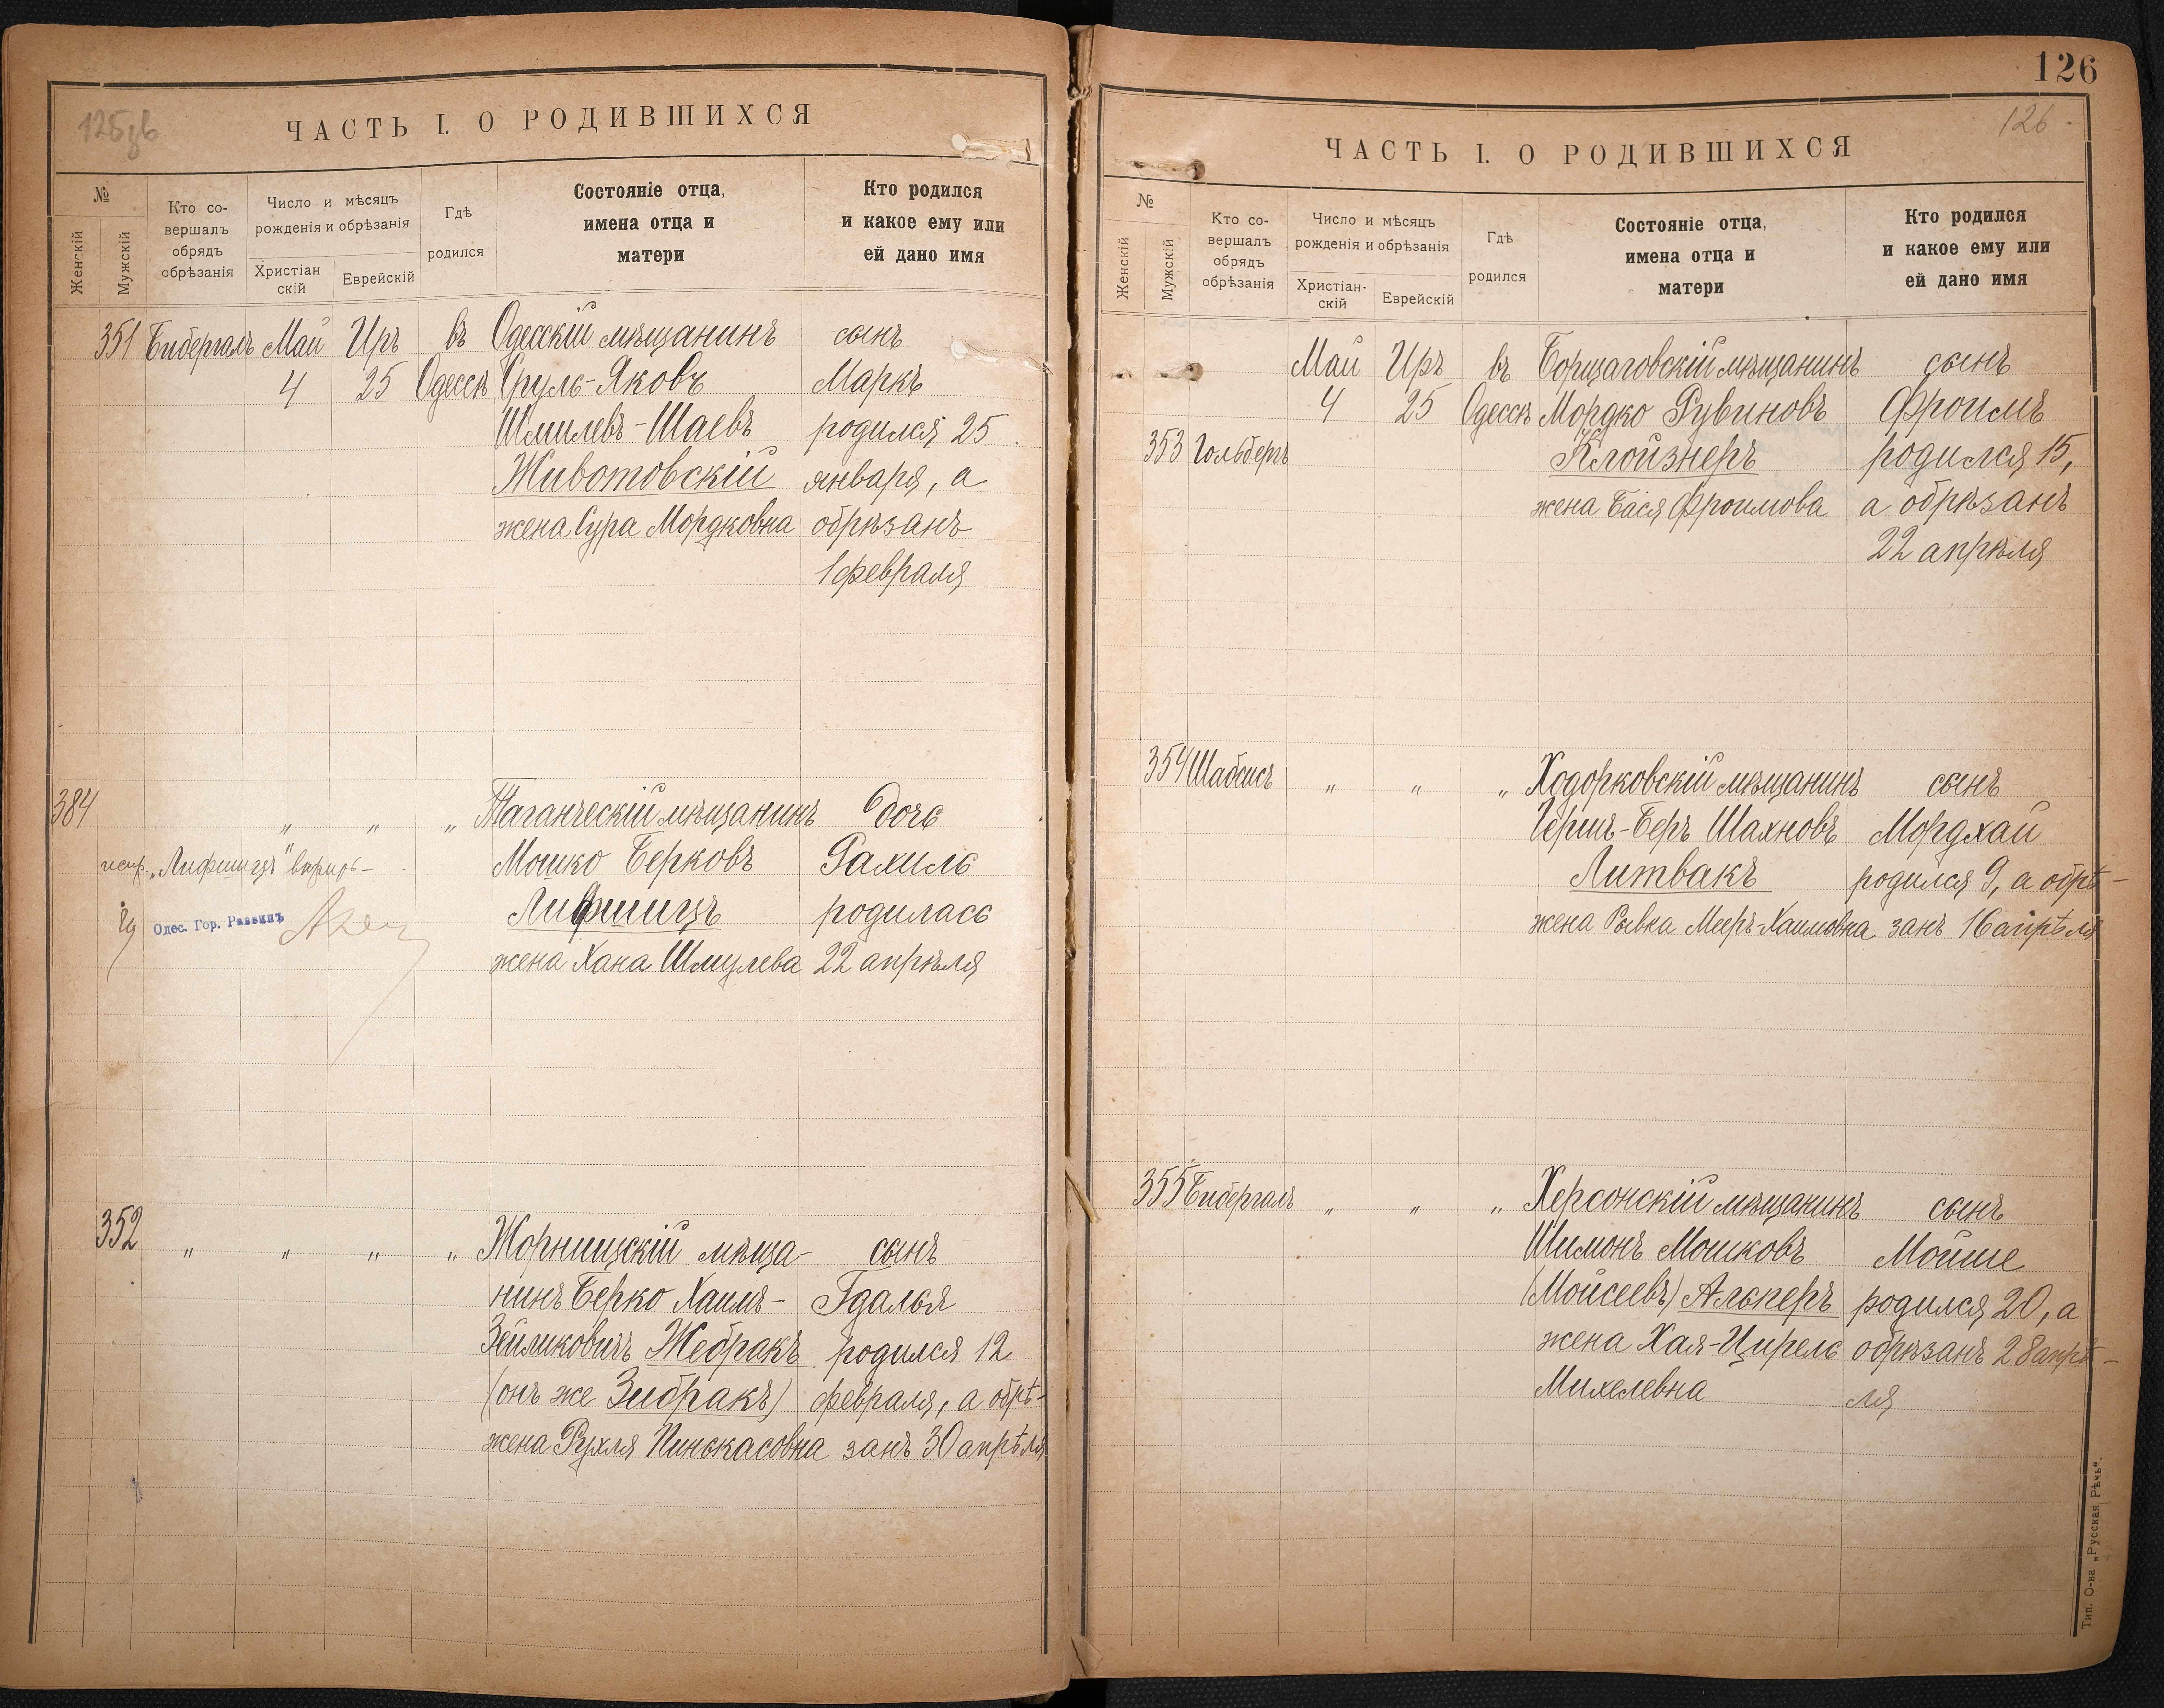 125 об
ЧАСТЬ I. О РОДИВШИХСЯ
№
Женскій
Мужскій
Кто со-
вершалъ
обрядъ
обрѣзанія
Число и мѣсяцъ
рожденія и обрѣзанія
Христіан
скій
Еврейскій
Гдѣ
родился
Состояніе отца,
имена отца и
матери
Кто родился
и какое ему или
ей дано имя
351 Бибергалъ Май Иръ въ Одесскій мѣщанинъ сынъ
4 25 Одессѣ Сруль-Яковъ Маркъ
Шмилевъ-Шаевъ родился 25
Животовскій января, а
жена Сура Мордковна обрѣзанъ
1 февраля
384 „ „ „ Таганческій мѣщанинъ дочь
испр. „Лифшицъ" вѣрно- Мошко Берковъ Рахиль
Одес. Гор. Раввинъ Лифшицъ родилась
жена Хана Шмулева 22 апрѣля
352 „ „ „ „ Жорнищскій мѣща- сынъ
нинъ Берко Хаимъ- Гдалья
Зейликовичъ Жебракъ родился 12
(онъ же Зибракъ) февраля, а обрѣ-
жена Рухля Пинскасовна занъ 30 апрѣля
126
126
ЧАСТЬ I. О РОДИВШИХСЯ
№
Женскій
Мужскій
Кто со-
вершалъ
обрядъ
обрѣзанія
Число и мѣсяцъ
рожденія и обрѣзанія
Христіан-
скій
Еврейскій
Гдѣ
родился
Состояніе отца,
имена отца и
матери
Кто родился
и какое ему или
ей дано имя
Май Иръ въ Борщаговскій мѣщанинъ сынъ
4 25 Одессѣ Мордко Рувиновъ Фроимъ
353 Гольбергъ Клойзнеръ родился 15,
жена Бася Фроимова а обрѣзанъ
22 апрѣля
354 Шабсисъ „ „ „ Ходорковскій мѣщанинъ сынъ
Гершъ-Беръ Шахновъ Мордхай
Литвакъ родился 9, а обрѣ-
жена Рывка Мееръ-Хаимовна занъ 16 апрѣля
355 Бибергалъ „ „ „ Херсонскій мѣщанинъ сынъ
Шимонъ Мошковъ Мойше
(Моисеевъ) Альперъ родился 20, а
жена Хая-Цирель обрѣзанъ 28 апрѣ-
Михелевна ля
Тип. О-ва „Русская Рѣчь".